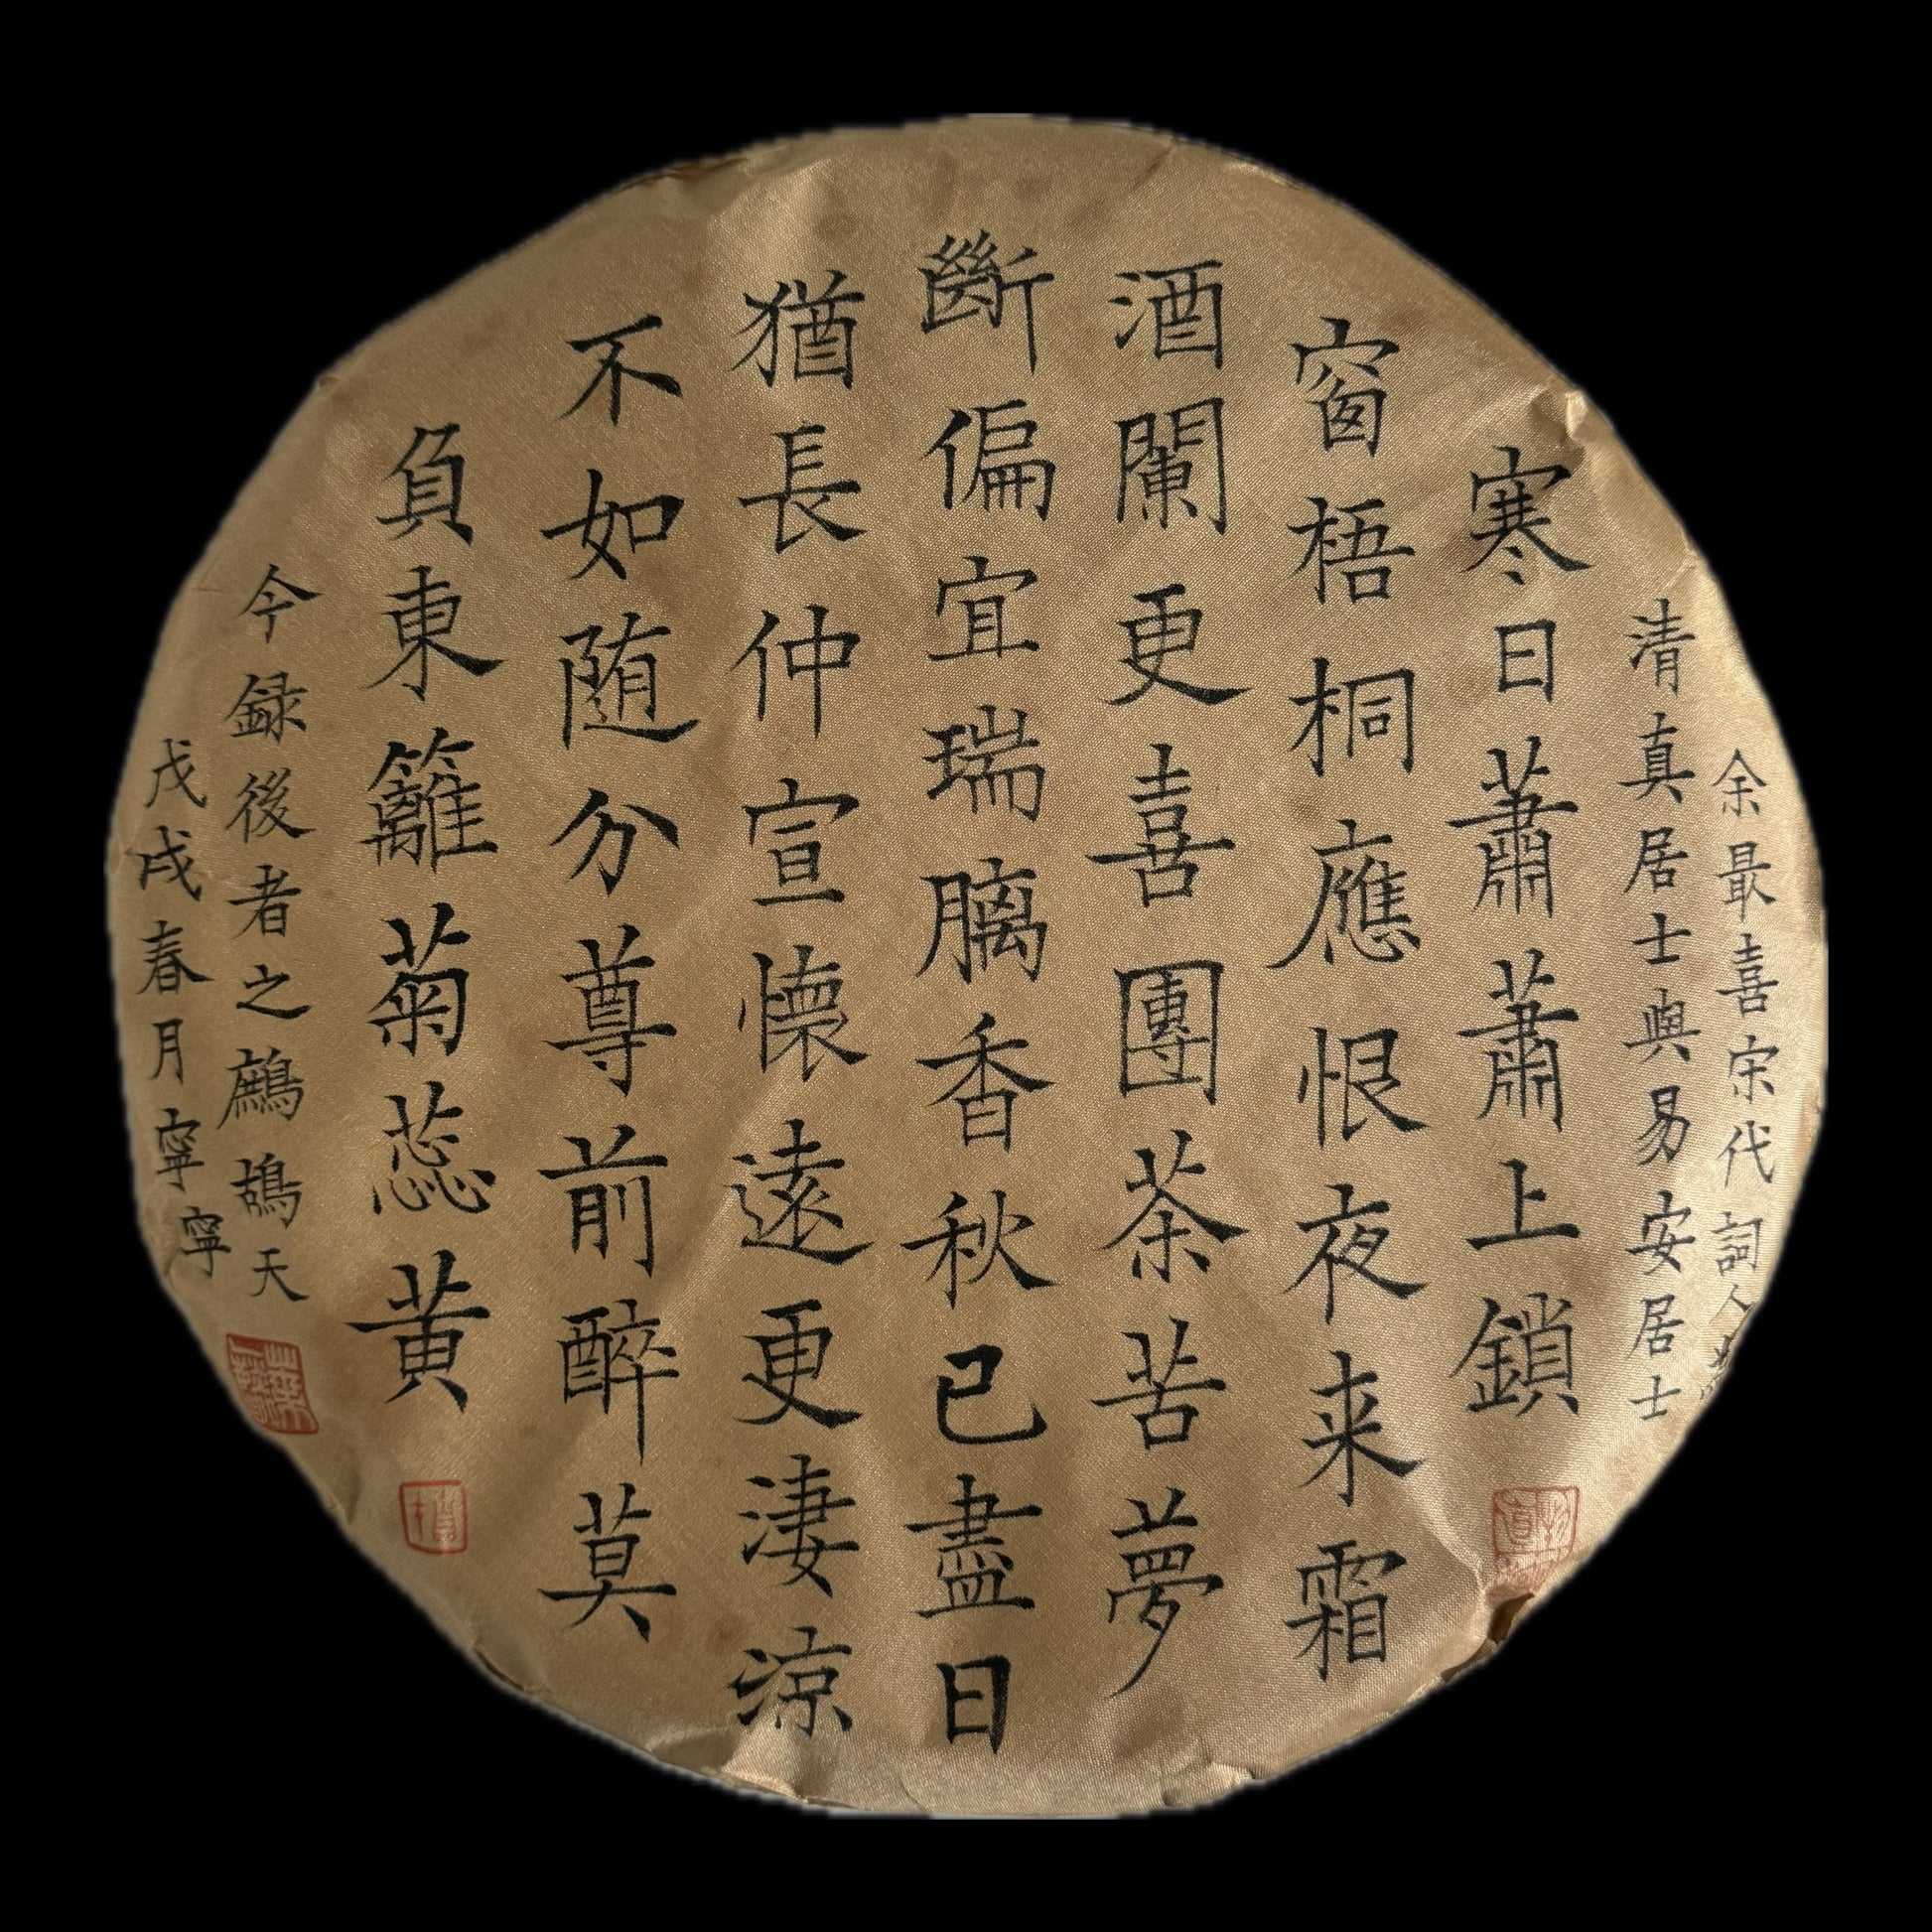 余最喜宋代詞人
清真居士與易安居士
寒日蕭蕭上鎖
窗梧桐應恨夜来霜
酒闌更喜團茶苦夢
斷偏宜瑞腦香秋已盡日
猶長仲宣懷遠更淒涼
不如随分尊前醉莫
負東籬菊蕊黄
今録後者之鷓鴣天
戊戌春月寧寧